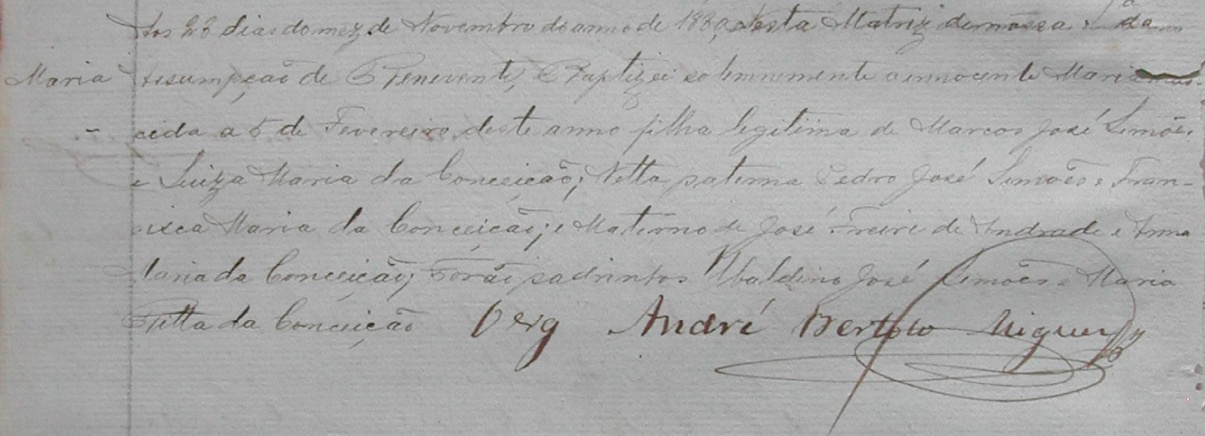 Aos 23 dias do mez de Novembro do anno de 1889, nesta Matriz de nossa S.ª da
Maria
Assumpção de Benevente, Baptizei solemnemente a innocente Maria nas-
cida a 5 de Fevereiro deste anno filha legitima de Marcos José Simões
e Luiza Maria da Conceição; Netta paterna Pedro José Simões e Fran-
cisca Maria da Conceição; e Materno de José Freire de Andrade e Anna
Maria da Conceição; Forão padrinhos Ubaldino José Simões e Maria
Netta da Conceição Virg André Bertolo